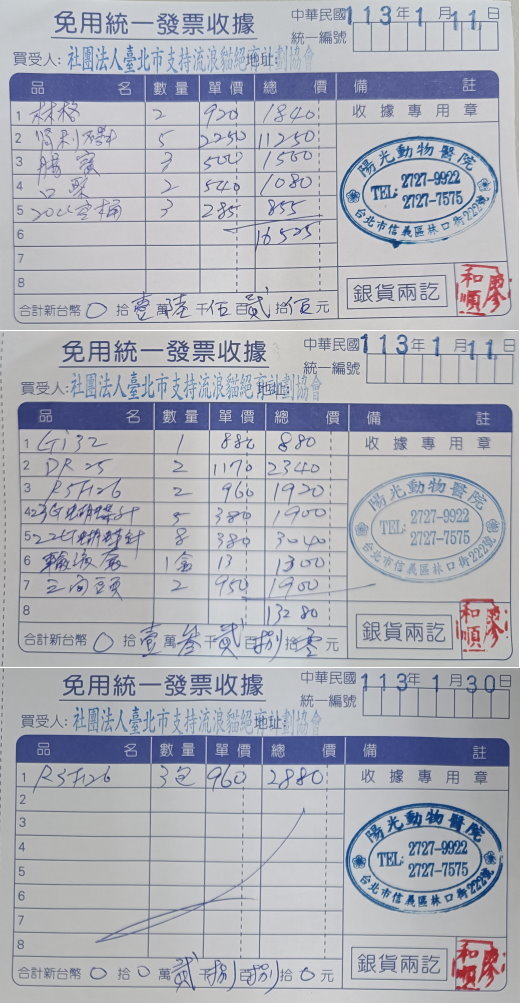 免用統一發票收據
中華民國113年1月11日
統一編號
買受人:社團法人臺北市支持流浪貓絕育計劃協會
地址:
品名 數量 單價 總價 備註
收據專用章
1 林格 2 920 1840
2 5 2250 11250
3 腸寶 3 500 1500
4 2 540 1080
5 20L空桶 3 285 855
6 16525
7
8
陽光動物醫院
TEL: 2727-9922
2727-7575
台北市信義區林口街222號
銀貨兩訖
廖和順
合計新台幣0拾壹萬陸仟伍百貳拾伍元
免用統一發票收據
中華民國113年1月11日
統一編號
買受人:社團法人臺北市支持流浪貓絕育計劃協會
地址:
品名 數量 單價 總價 備註
收據專用章
1 Gi32 1 880 880
2 DR25 2 1170 2340
3 RSF126 2 960 1920
4 23G蝴蝶針 5 380 1900
5 22G蝴蝶針 8 380 3040
6 輸液套 1盒 13 1300
7 三向頭 2 950 1900
8 13280
陽光動物醫院
TEL: 2727-9922
2727-7575
台北市信義區林口街222號
銀貨兩訖
廖和順
合計新台幣0拾壹萬叁千貳百捌拾零元
免用統一發票收據
中華民國113年1月30日
統一編號
買受人:社團法人臺北市支持流浪貓絕育計劃協會
地址:
品名 數量 單價 總價 備註
收據專用章
1 RSF126 3包 960 2880
2
3
4
5
6
7
8
陽光動物醫院
TEL: 2727-9922
2727-7575
台北市信義區林口街222號
銀貨兩訖
廖和順
合計新台幣0拾0萬貳千捌百捌拾0元